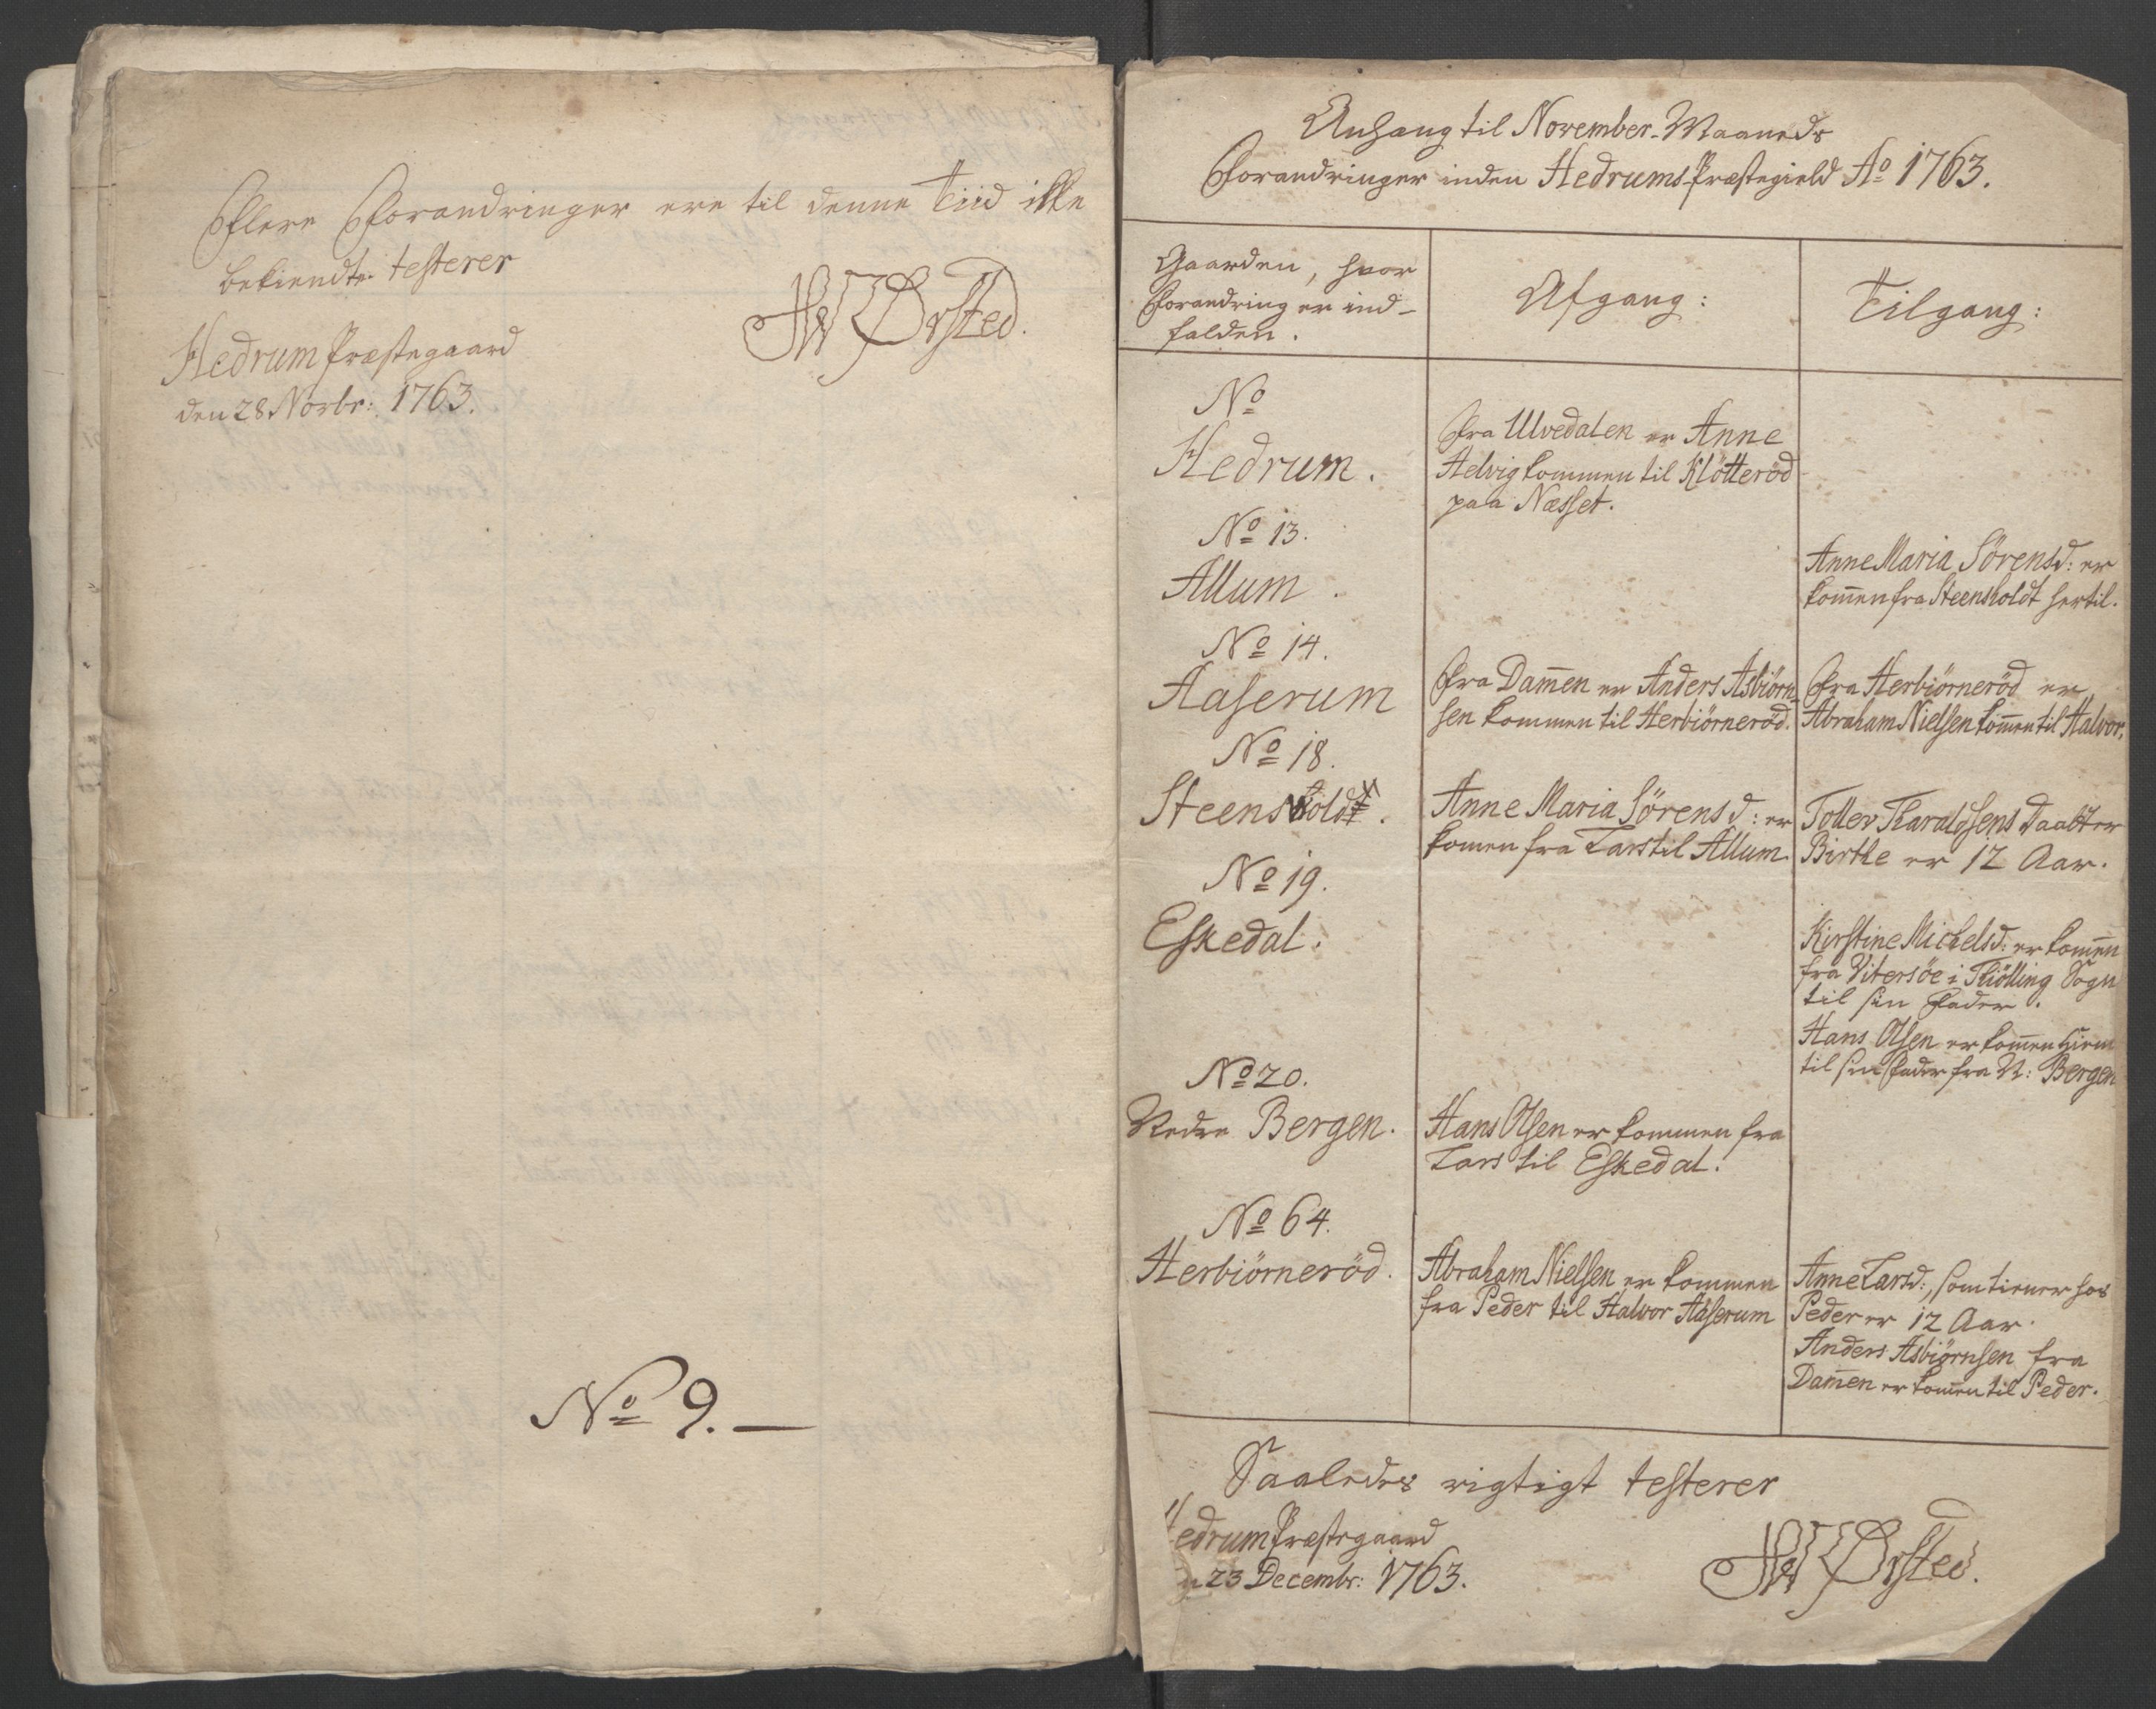 Flere Forandringer ere til denne Tiid ikke
bekiendte testerer
HW Ørsted.
Hedrum Præstegaard
den 28 Novbr: 1763.
No 9. —
Anhang til November-Maaneds
Forandringer inden Hedrums Præstegield Ao 1763.
Gaarden, hvor
Forandring er ind-
falden.
Afgang:
Tilgang:
No
Hedrum.
Fra Ulvedalen er Anne
Helvig kommen til Klötteröd
paa Næsset.
No 13.
Allum.
Anne Maria Sörensd: er
kom̄en fra Steensholdt hertil.
No 14.
Aaserum
Fra Dam̄en er Anders Asbiörn-
sen kommen til Herbiörneröd.
Fra Herbiörneröd er
Abraham Nielsen kom̄en til Halvor.
No 18.
Steensholdt.
Anne Maria Sörensd: er
komen fra Lars til Allum.
Tollev Haraldsens Daatter
Birthe er 12 Aar.
No 19.
Eskedal.
Kirstine Michelsd: er kom̄en
fra Vitersöe i Thiölling Sogn
til sin Fader.
Hans Olsen er kom̄en hiem
til sin Fader fra N: Bergen
No 20.
Nedre Bergen.
Hans Olsen er kommen fra
Lars til Eskedal.
No 64.
Herbiörneröd.
Abraham Nielsen er kommen
fra Peder til Halvor Aaserum
Anne Larsd:, som tiener hos
Peder er 12 Aar.
Anders Asbiörnsen fra
Dam̄en er kom̄en til Peder.
Saaledes rigtigt testerer
Hedrum Præstegaard
23 Decembr: 1763.
HW Ørsted.